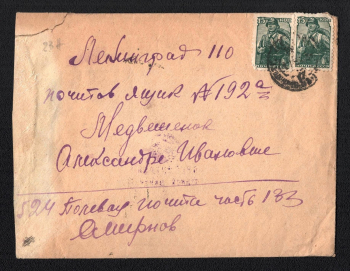 15 15
Ленинград 110
почтов ящик № 192а
Медвешенок
Александре Ивановне
594 Полевая почта часть 133
Смирнов